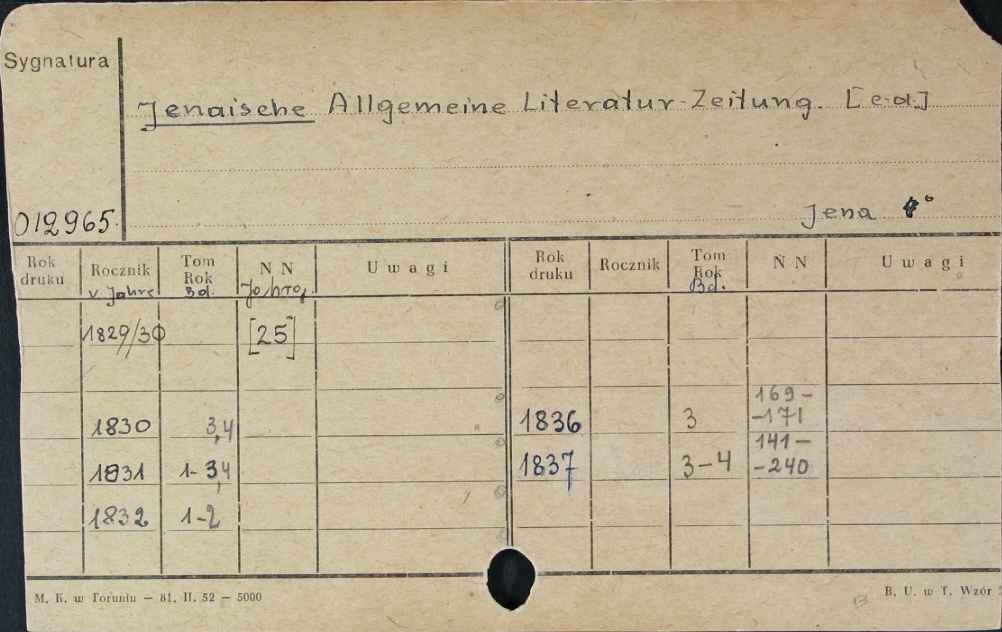 Sygnatura
Jenaische Allgemeine Literatur-Zeitung. [c.d.]
012965.
Jena 4°
Rok druku Rocznik Tom Rok N N Uwagi Rok druku Rocznik Tom Rok N N Uwagi
v. Jahre Bd. Jahrg. Bd.
1829/30 [25]
169-
1830 3,4 1836 3 -171
141-
1831 1-3,4 1837 3-4 -240
1832 1-2
M. K. w Toruniu — 81. II. 52 — 5000
B. U. w T. Wzór